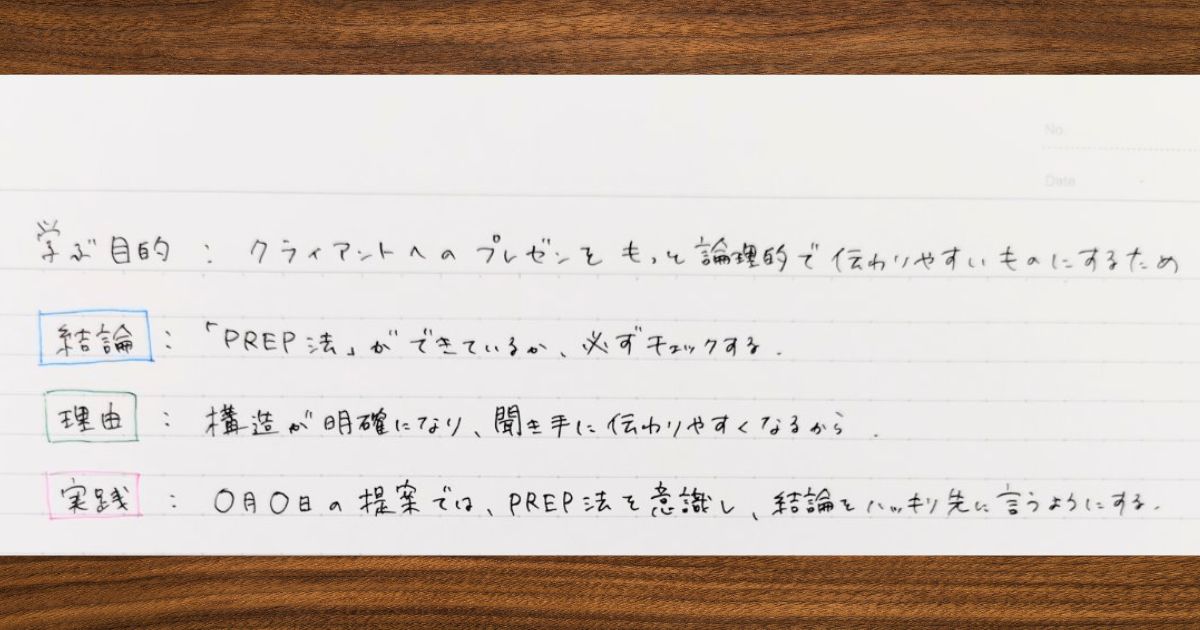 No.
Date
学ぶ目的 : クライアントへのプレゼンをもっと論理的で伝わりやすいものにするため
結論 : 「PREP法」ができているか、必ずチェックする.
理由 : 構造が明確になり、聞き手に伝わりやすくなるから.
実践 : 〇月〇日の提案では、PREP法を意識し、結論をハッキリ先に言うようにする.